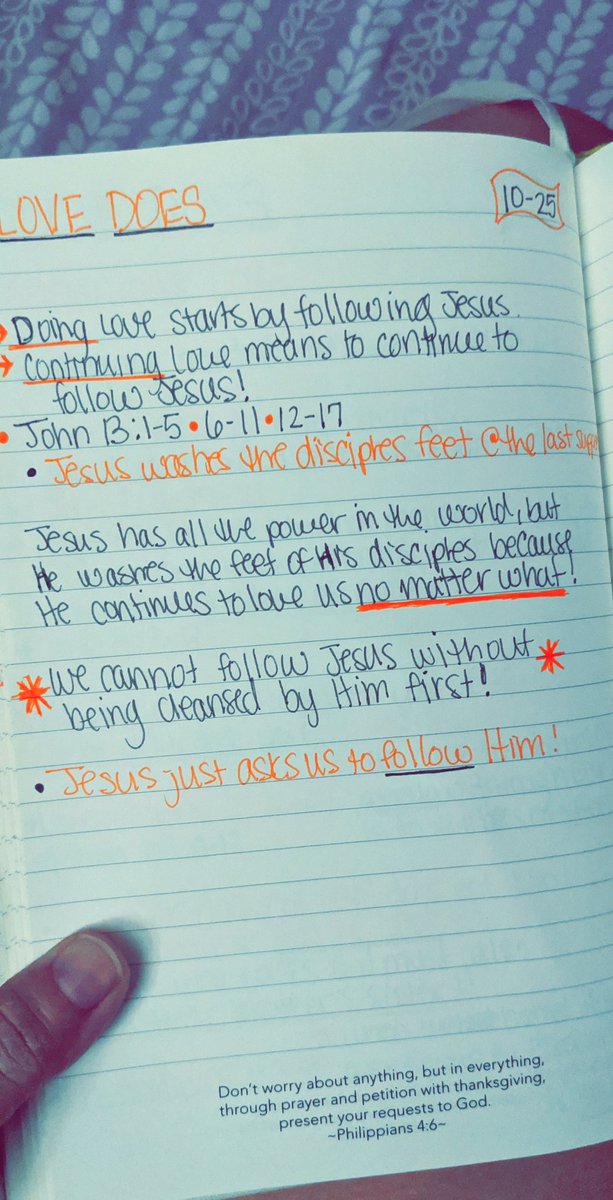 LOVE DOES
10-25
Doing love starts by following Jesus.
Continuing love means to continue to
follow Jesus!
John 13:1-5 • 6-11 • 12-17
• Jesus washes the disciples feet @the last supp
Jesus has all the power in the world, but
He washes the feet of His disciples because
He continues to love us no matter what!
We cannot follow Jesus without
being cleansed by Him first!
• Jesus just asks us to follow Him!
Don't worry about anything, but in everything,
through prayer and petition with thanksgiving,
present your requests to God.
~Philippians 4:6~